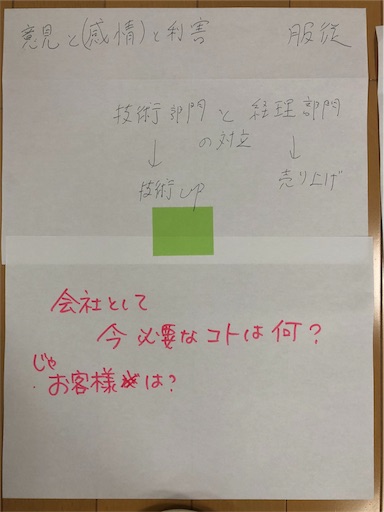 意見と(感情)と利害 服従
技術部門と経理部門
の対立
↓ ↓
技術up 売り上げ
会社として
今必要なコトは何?
じゃ
・お客様は?